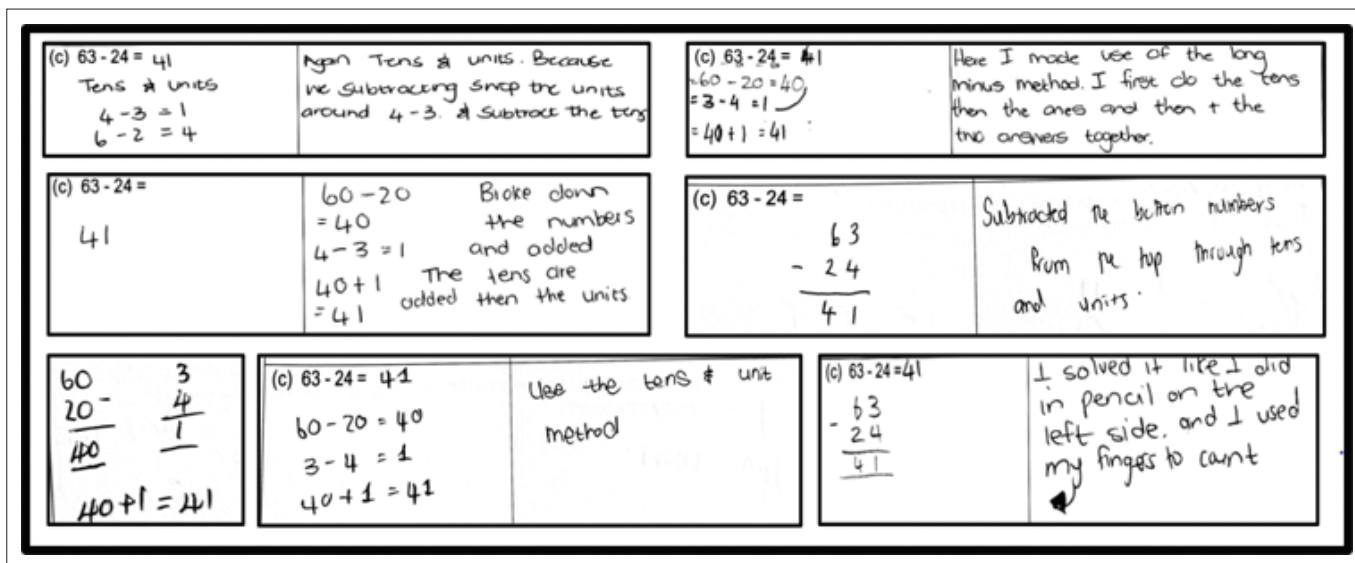 (c) 63 - 24 = 41
Tens & units
4 - 3 = 1
6 - 2 = 4
Again Tens & units. Because
we subtracting swop the units
around 4 - 3. & Subtract the tens
(c) 63 - 24 = 41
= 60 - 20 = 40
= 3 - 4 = 1
= 40 + 1 = 41
Here I made use of the long
minus method. I first do the tens
then the ones and then + the
two answers together.
(c) 63 - 24 =
41
60 - 20 Broke down
= 40 the numbers
4 - 3 = 1 and added
40 + 1 The tens are
= 41 added then the units
(c) 63 - 24 =
63
- 24
41
Subtracted the bottom numbers
from the top through tens
and units.
60 3
20 - 4
40 1
40 + 1 = 41
(c) 63 - 24 = 41
60 - 20 = 40
3 - 4 = 1
40 + 1 = 41
Use the tens & unit
method
(c) 63 - 24 = 41
63
- 24
41
I solved it like I did
in pencil on the
left side. and I used
my fingers to count